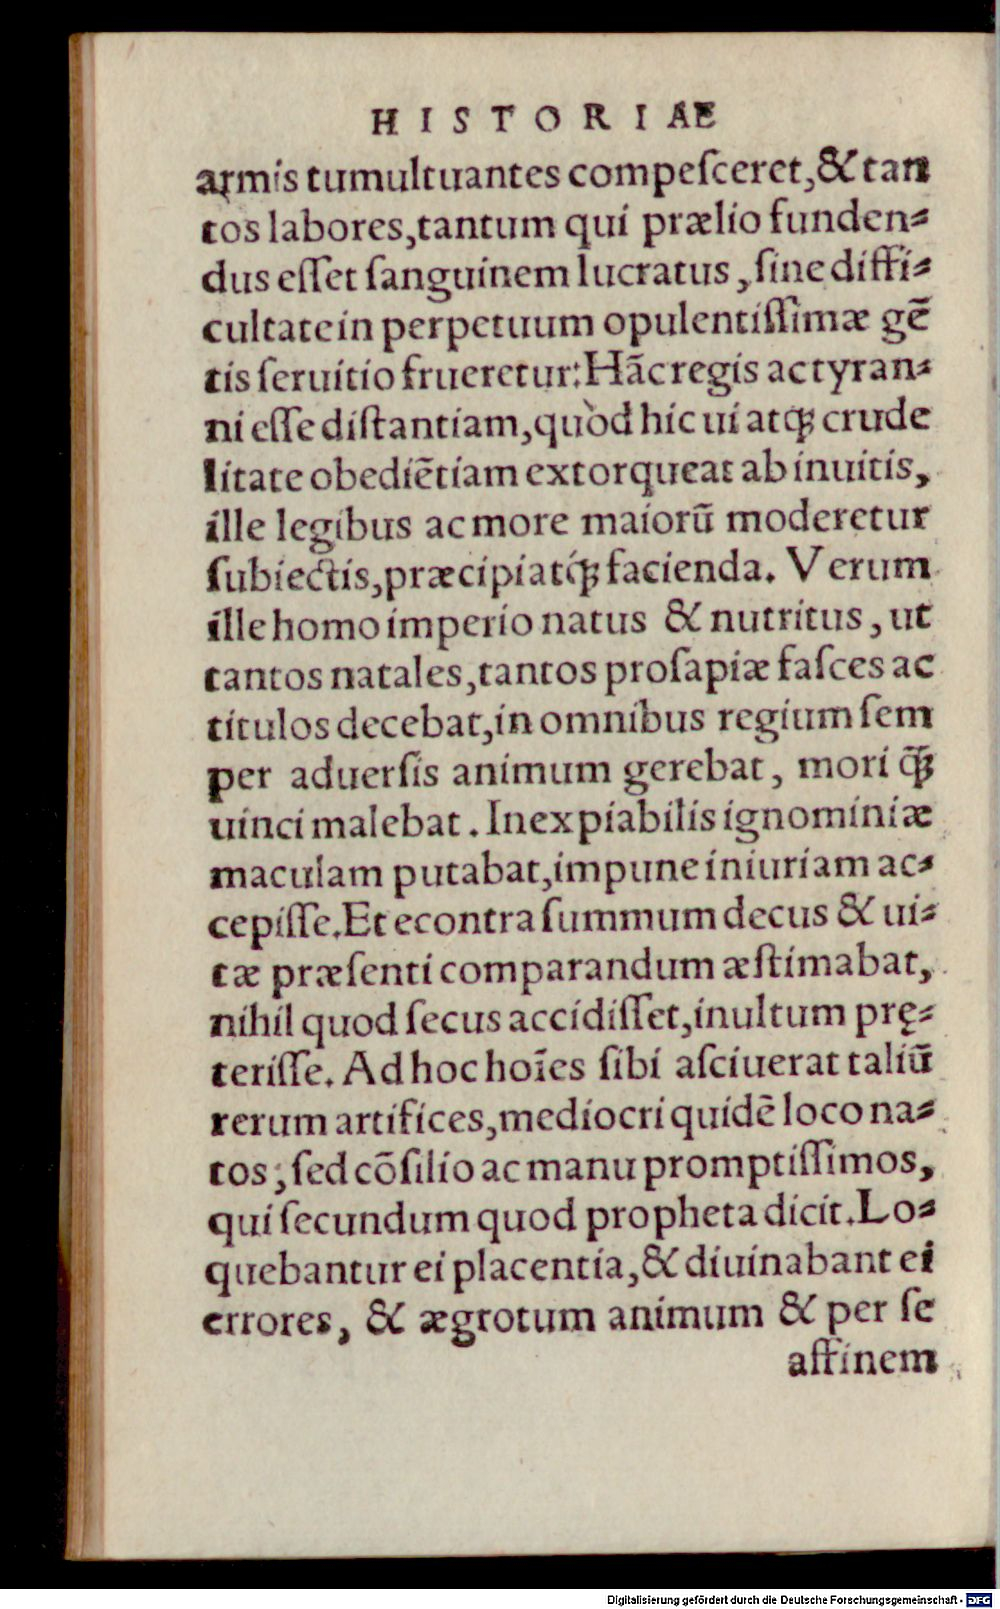 HISTORIAE
armis tumultuantes compeſceret, & tan
tos labores, tantum qui prælio funden⸗
dus eſſet ſanguinem lucratus, ſine diffi⸗
cultate in perpetuum opulentiſſimæ gẽ
tis ſeruitio frueretur: Hãc regis ac tyran⸗
ni eſſe diſtantiam, quòd hic ui atq́ꝫ crude
litate obediẽtiam extorqueat ab inuitis,
ille legibus ac more maiorũ moderetur
ſubiectis, præcipiatq́ꝫ facienda. Verum
ille homo imperio natus & nutritus, ut
tantos natales, tantos proſapiæ faſces ac
titulos decebat, in omnibus regium ſem
per aduerſis animum gerebat, mori q̃ꝫ
uinci malebat. Inexpiabilis ignominiæ
maculam putabat, impune iniuriam ac⸗
cepiſſe. Et econtra ſummum decus & ui⸗
tæ præſenti comparandum æſtimabat,
nihil quod ſecus accidiſſet, inultum prę⸗
teriſſe. Ad hoc hoĩes ſibi aſciuerat taliũ
rerum artifices, mediocri quidẽ loco na⸗
tos; ſed cõſilio ac manu promptiſſimos,
qui ſecundum quod propheta dicit. Lo⸗
quebantur ei placentia, & diuinabant ei
errores, & ægrotum animum & per ſe
affinem
Digitalisierung gefördert durch die Deutsche Forschungsgemeinschaft - DFG